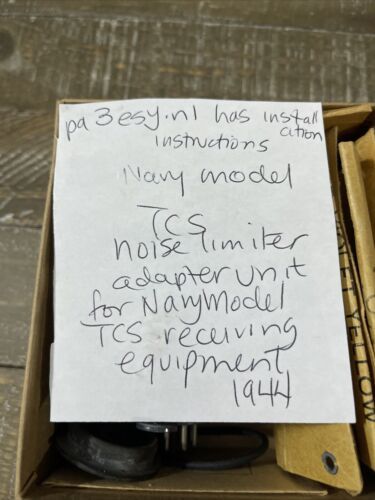 pa3esy.nl has install
ation
instructions
Navy model
TCS
noise limiter
adapter unit
for Navy Model
TCS receiving
equipment
1944
VIOLET YELLOW